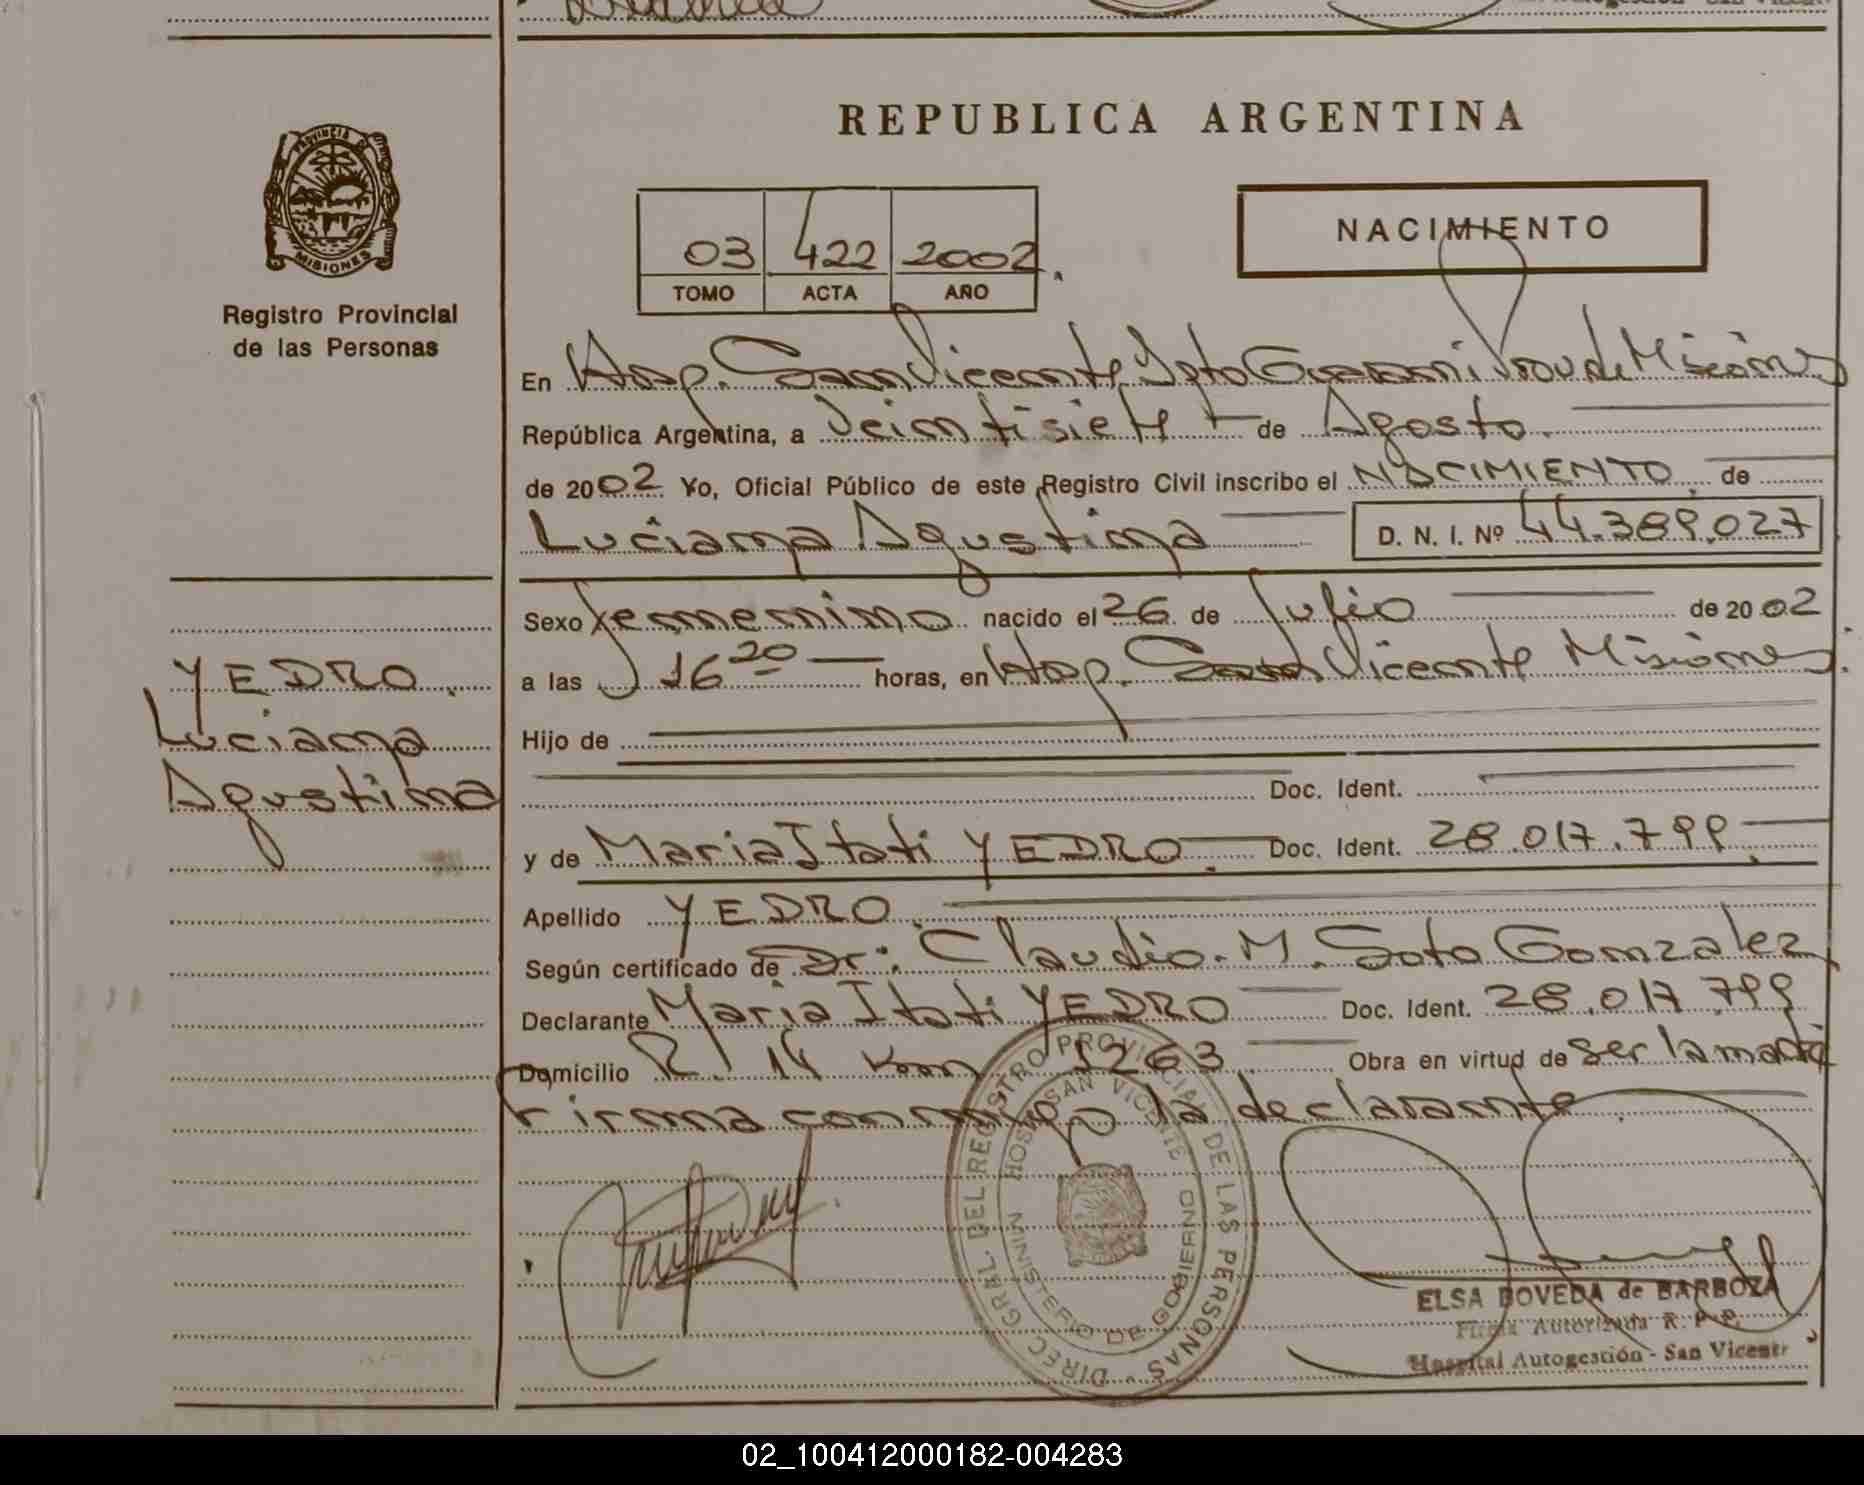 REPUBLICA ARGENTINA
PROVINCIA DE
MISIONES
Registro Provincial
de las Personas
03 422 2002.
TOMO ACTA AÑO
NACIMIENTO
En Hosp. San Vicente, Dpto Guarani Prov de Misiones
República Argentina, a Veintisiete de Agosto.
de 2002 Yo, Oficial Público de este Registro Civil inscribo el NACIMIENTO de
Luciana Agustina D. N. I. Nº 44.389.027
Sexo femenino nacido el 26 de Julio de 2002
a las 16 20 horas, en Hosp. San Vicente Misiones.
Hijo de
Doc. Ident.
y de Maria Itati YEDRO. Doc. Ident. 28.017.799
Apellido YEDRO.
Según certificado de Dr: Claudio. M. Soto Gonzalez
Declarante Maria Itati YEDRO Doc. Ident. 28.017.799
Domicilio R. 14 Km 1263 Obra en virtud de ser la madre
Firma conmigo la declarante.
YEDRO.
Luciana
Agustina
DIREC. GRAL. DEL REGISTRO PROVINCIAL DE LAS PERSONAS
HOSP. SAN VICENTE
MINISTERIO DE GOBIERNO
ELSA DOVEDA de BARBOZA
Firma Autorizada R. P. P.
Hospital Autogestión - San Vicente
02_100412000182-004283